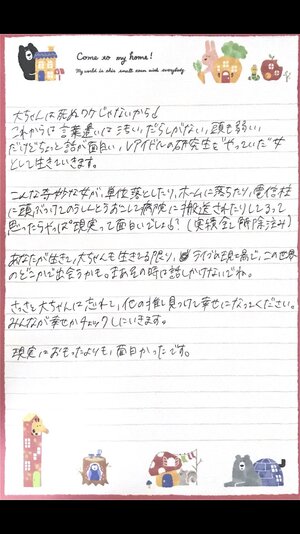 Come to my home!
My world is this small room with everybody.
大ちゃんは死ぬワケじゃないから♩
これからは言葉遣いは汚い、だらしがない、頭も弱い、
だけどちょっと話が面白い、Vアイドルの研究生を"やっていた"女
として生きていきます。
こんな奇妙な女が、単位落としたり、ホームに落ちたり、電信柱
に頭ぶつけてのうしんとうおこして病院に搬送されたりしてるって
思ったらやっぱ"現実"って面白いでしょ？(実績全解除済み)
あなたが生きて、大ちゃんも生きてる限り、ライブの現場で、この世界
のどこかで出会うかも。まあその時は話しかけないでね。
さっさと大ちゃんに忘れて、他の推し見つけて幸せになってください。
みんなが幸せかチェックしにいきます。
現実におもったよりも、面白かったです。